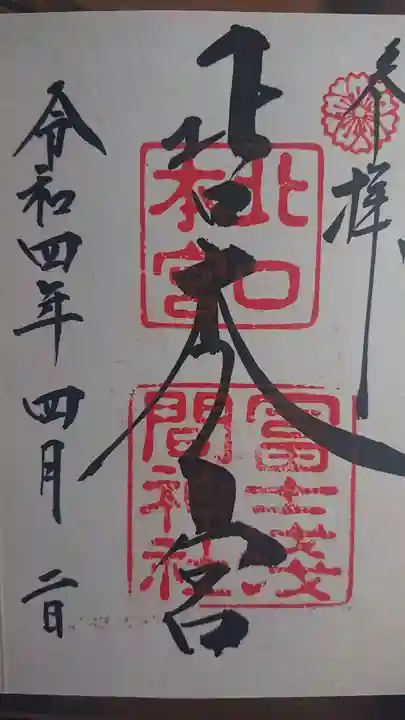 参拝
北口本宮
北口
本宮
冨士淺
間神社
令和四年四月二日